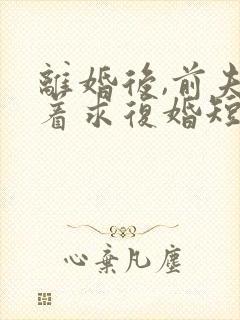 離婚後,前夫
着求復婚短
心棄凡塵